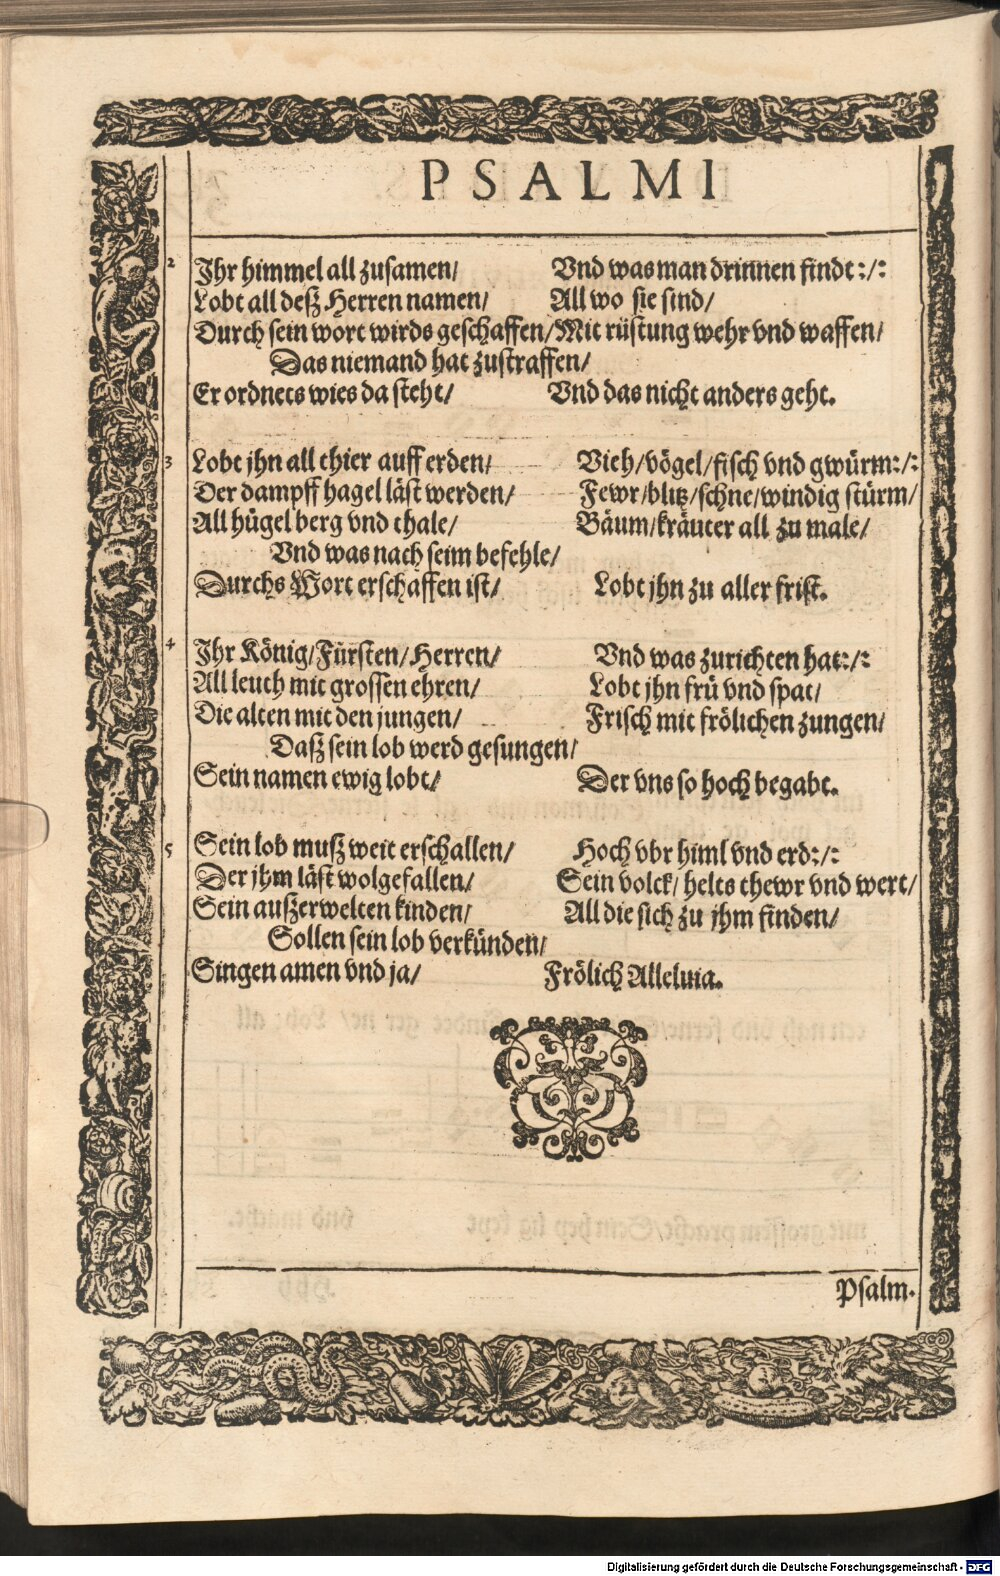 PSALMI
2 Ihr himmel all zusamen/ Vnd was man drinnen findt:/:
Lobt all desz Herren namen/ All wo sie sind/
Durch sein wort wirds geschaffen/ Mit rüstung wehr vnd waffen/
Das niemand hat zustraffen/
Er ordnets wies da steht/ Vnd das nicht anders geht.
3 Lobt jhn all thier auff erden/ Vieh/vögel/fisch vnd gwürm:/:
Der dampff hagel läst werden/ Fewr/blitz/schne/windig stürm/
All hügel berg vnd thale/ Bäum/kräuter all zu male/
Vnd was nach seim befehle/
Durchs Wort erschaffen ist/ Lobt jhn zu aller frist.
4 Ihr König/Fürsten/Herren/ Vnd was zurichten hat:/:
All leuth mit grossen ehren/ Lobt jhn frü vnd spat/
Die alten mit den jungen/ Frisch mit frölichen zungen/
Dasz sein lob werd gesungen/
Sein namen ewig lobt/ Der vns so hoch begabt.
5 Sein lob musz weit erschallen/ Hoch vbr himl vnd erd:/:
Der jhm läst wolgefallen/ Sein volck/ helts thewr vnd wert/
Sein auszerwelten kinden/ All die sich zu jhm finden/
Sollen sein lob verkünden/
Singen amen vnd ja/ Frölich Alleluia.
Psalm.
Digitalisierung gefördert durch die Deutsche Forschungsgemeinschaft - DFG